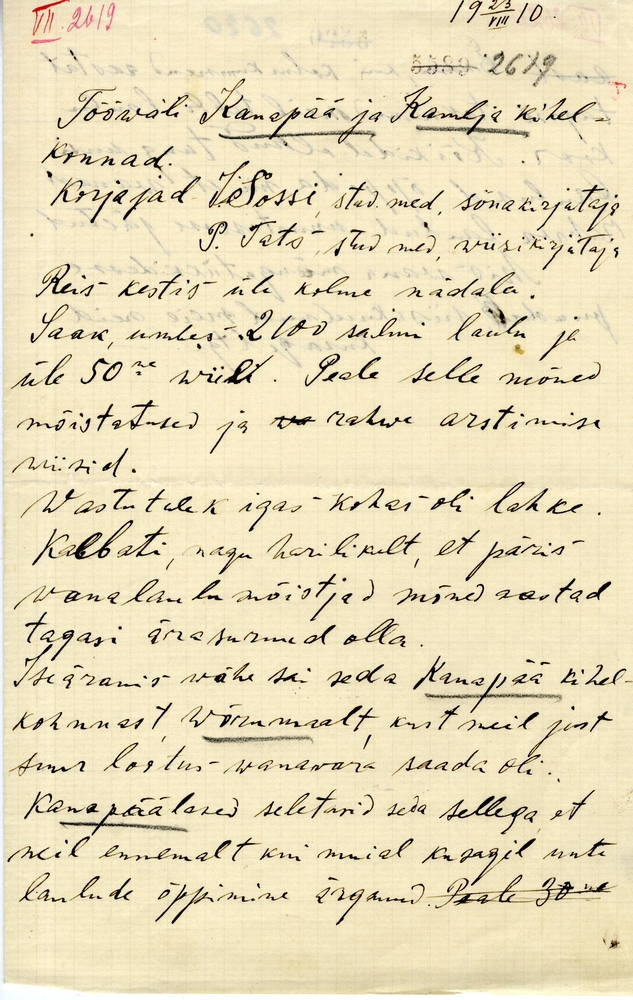 VII. 2619
19 23/VIII 10.
2619
Tööwäli Kanapää ja Kamlja kihel-
konnad.
Korjajad J. Sossi, stud. med, sõnakirjutaja
P. Tats, stud med, wiisikirjutaja
Reis kestis üle kolme nädala.
Saak, umbes 2100 salmi laulu ja
üle 50 ne wiisi. Peale selle mõned
mõistatused ja rahwa arstimise
wiisid.
Wastutulek igas kohas oli lahke.
Kaebati, nagu harilikult, et päris
wanalaulu mõistjad mõned aastad
tagasi ära surnud olla.
Iseäranis wähe sai seda Kanapää kihel-
kohnnast, Wõrumaalt, kust meil just
suur lootus wanawara saada oli.
Kanapäälased seletasid seda sellega, et
neil ennemalt kui muial kusagil uute
laulude õppimine ärganud. Peale 30 ne